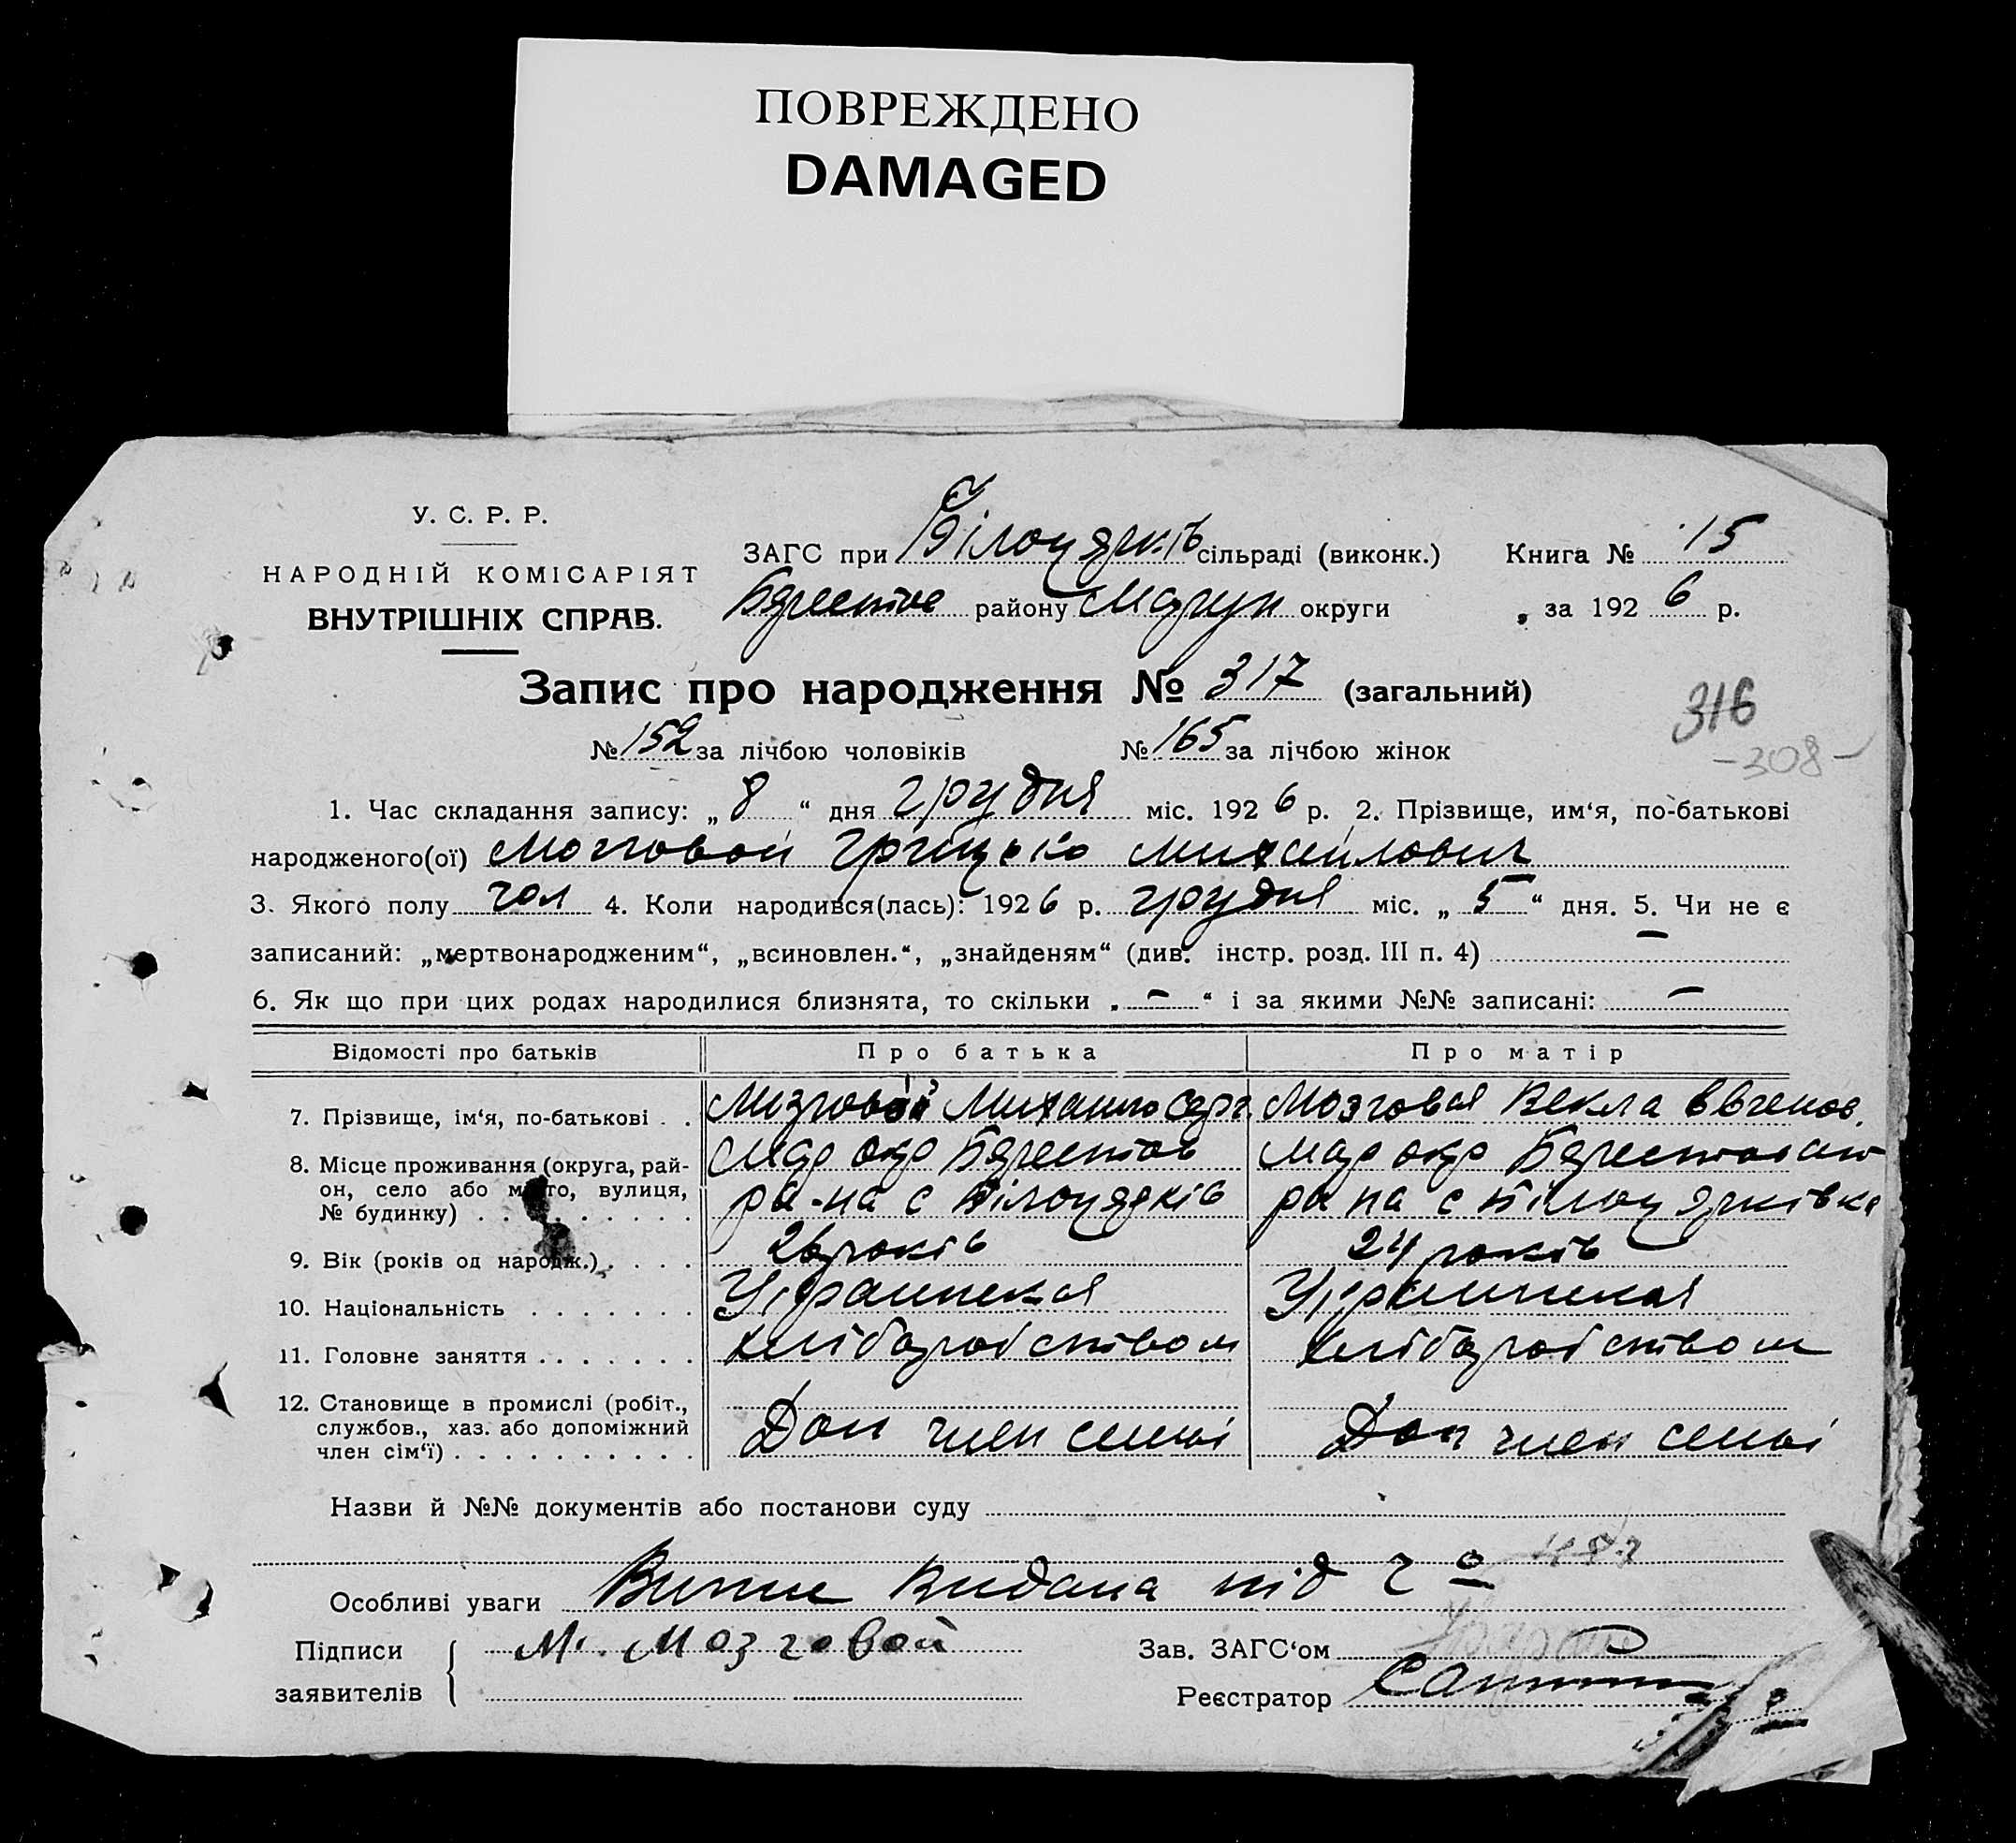 ПОВРЕЖДЕНО
DAMAGED
У. С. Р. Р.
НАРОДНІЙ КОМІСАРІЯТ
ВНУТРІШНІХ СПРАВ.
ЗАГС при сільраді (виконк.) Книга № 15
району округи „ за 192 6 р.
Запис про народження № 317 (загальний)
316
№ 152 за лічбою чоловіків № 165 за лічбою жінок
-308-
1. Час складання запису: „ 8 “ дня грудня міс. 192 6 р. 2. Прізвище, им‘я, по-батькові
народженого(ої) Мозговой Грицько Михайлович
3. Якого полу чол 4. Коли народився(лась): 192 6 р. грудня міс. „ 5 “ дня. 5. Чи не є
записаний: „мертвонародженим“, „всиновлен.“, „знайденям“ (див. інстр. розд. III п. 4) —
6. Як що при цих родах народилися близнята, то скільки „ — “ і за якими №№ записані: —
Відомості про батьків Про батька Про матір
7. Прізвище, ім‘я, по-батькові . . Мозговой Михайло Серг Мозговая Векла
8. Місце проживання (округа, рай-
он, село або місто, вулиця,
№ будинку) . . . . . . . . .
Мар окр Мар окр
ра-на с ра на с
9. Вік (років од народж.) . . . . 26 років 24 років
10. Національність . . . . . . . Украинская Украинская
11. Головне заняття . . . . . . . хлібаробством хлібаробством
12. Становище в промислі (робіт.,
службов., хаз. або допоміжний
член сім‘ї) . . . . . . . . . .
Доп член семьї Доп член семьї
Назви й №№ документів або постанови суду
Особливі уваги видана під
Підписи М. Мозговой Зав. ЗАГС‘ом
заявителів Реєстратор